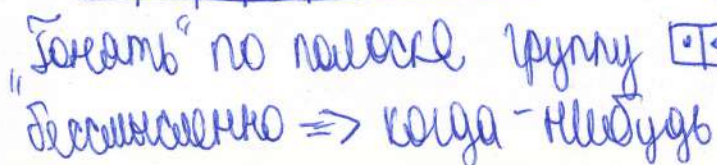 „Гонять“ по полоске группу
бессмысленно => когда-нибудь